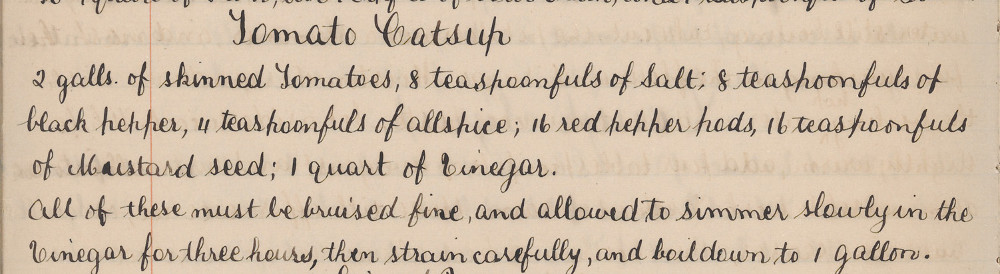 Tomato Catsup
2 galls. of skinned Tomatoes, 8 teaspoonfuls of Salt; 8 teaspoonfuls of
black pepper, 4 teaspoonfuls of allspice; 16 red pepper pods, 16 teaspoonfuls
of Mustard seed; 1 quart of Vinegar.
All of these must be bruised fine, and allowed to simmer slowly in the
Vinegar for three hours, then strain carefully, and boil down to 1 gallon.